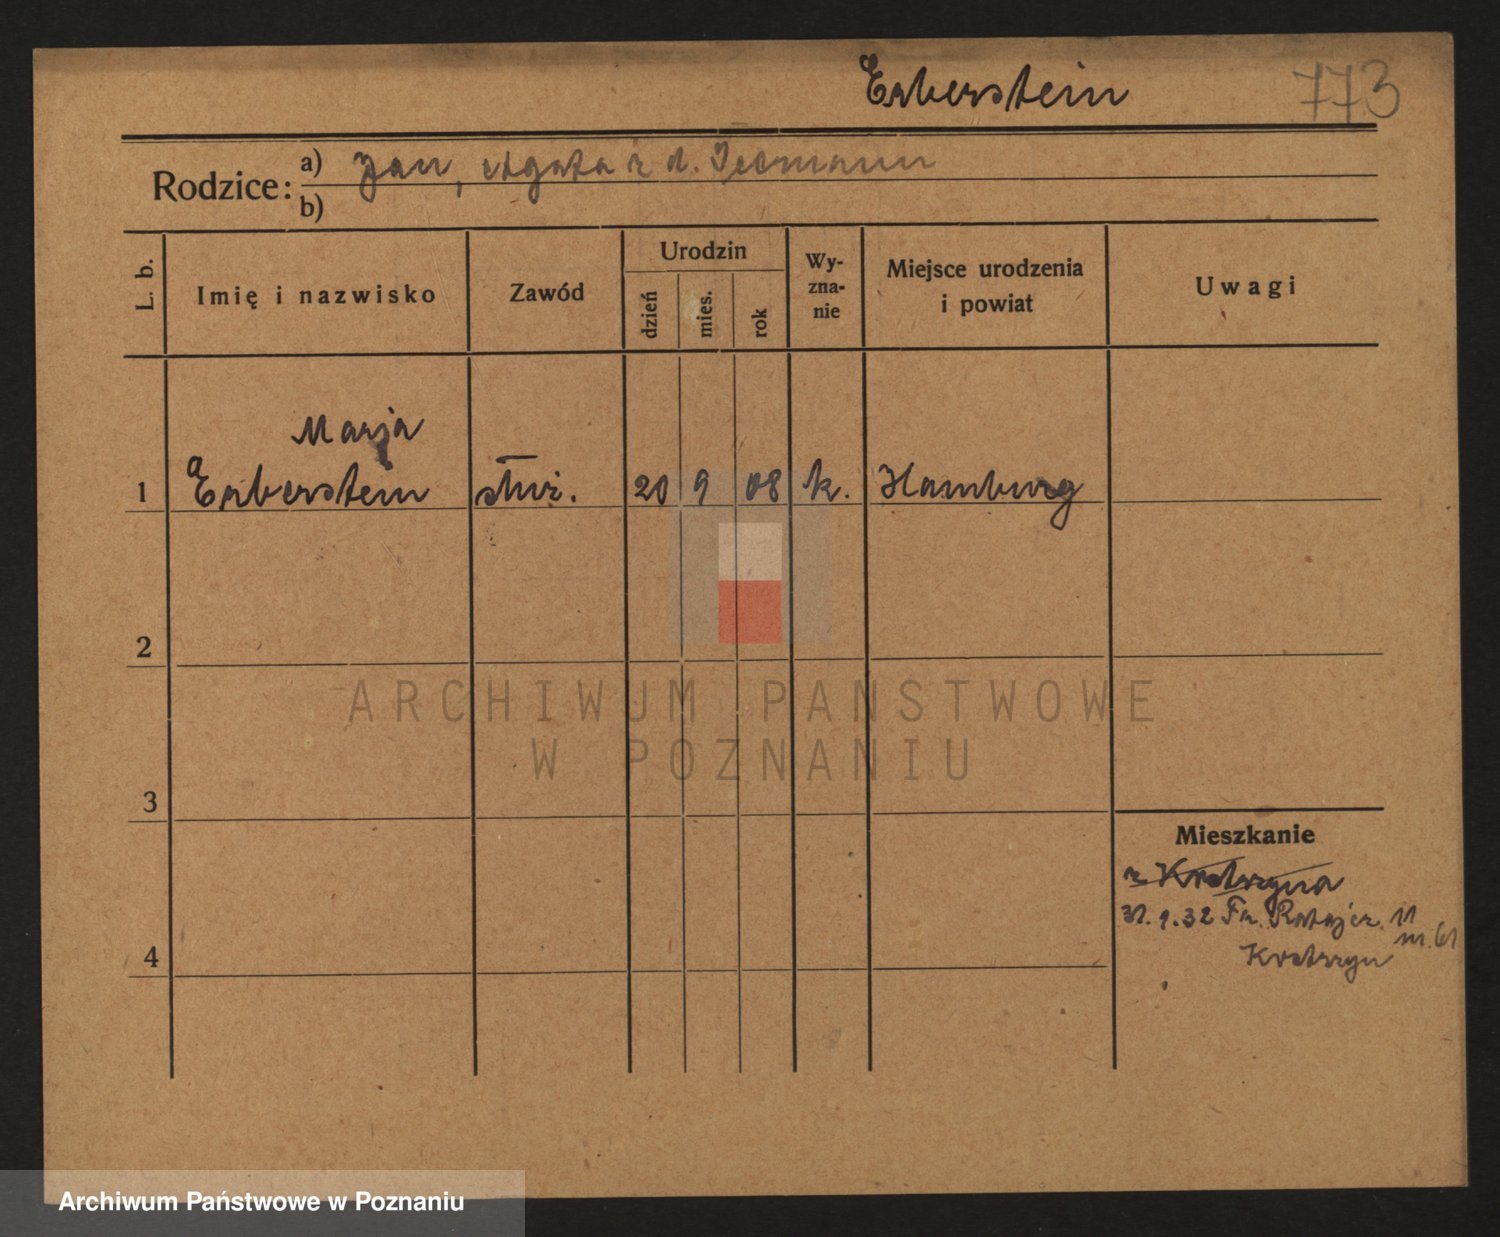 Erberstein 773
Rodzice: a) Jan, Agata z d.
b)
L. b. Imię i nazwisko Zawód Urodzin dzień mies. rok Wy-zna-nie Miejsce urodzenia i powiat Uwagi
Marja
1 Erberstein służ. 20 9 08 k. Hamburg
2
ARCHIWUM PAŃSTWOWE
W POZNANIU
3
Mieszkanie
z Krotoszyna
31. 9. 32 Fr. Ratajcz. 11
m. 61
Krotoszyn
4
Archiwum Państwowe w Poznaniu